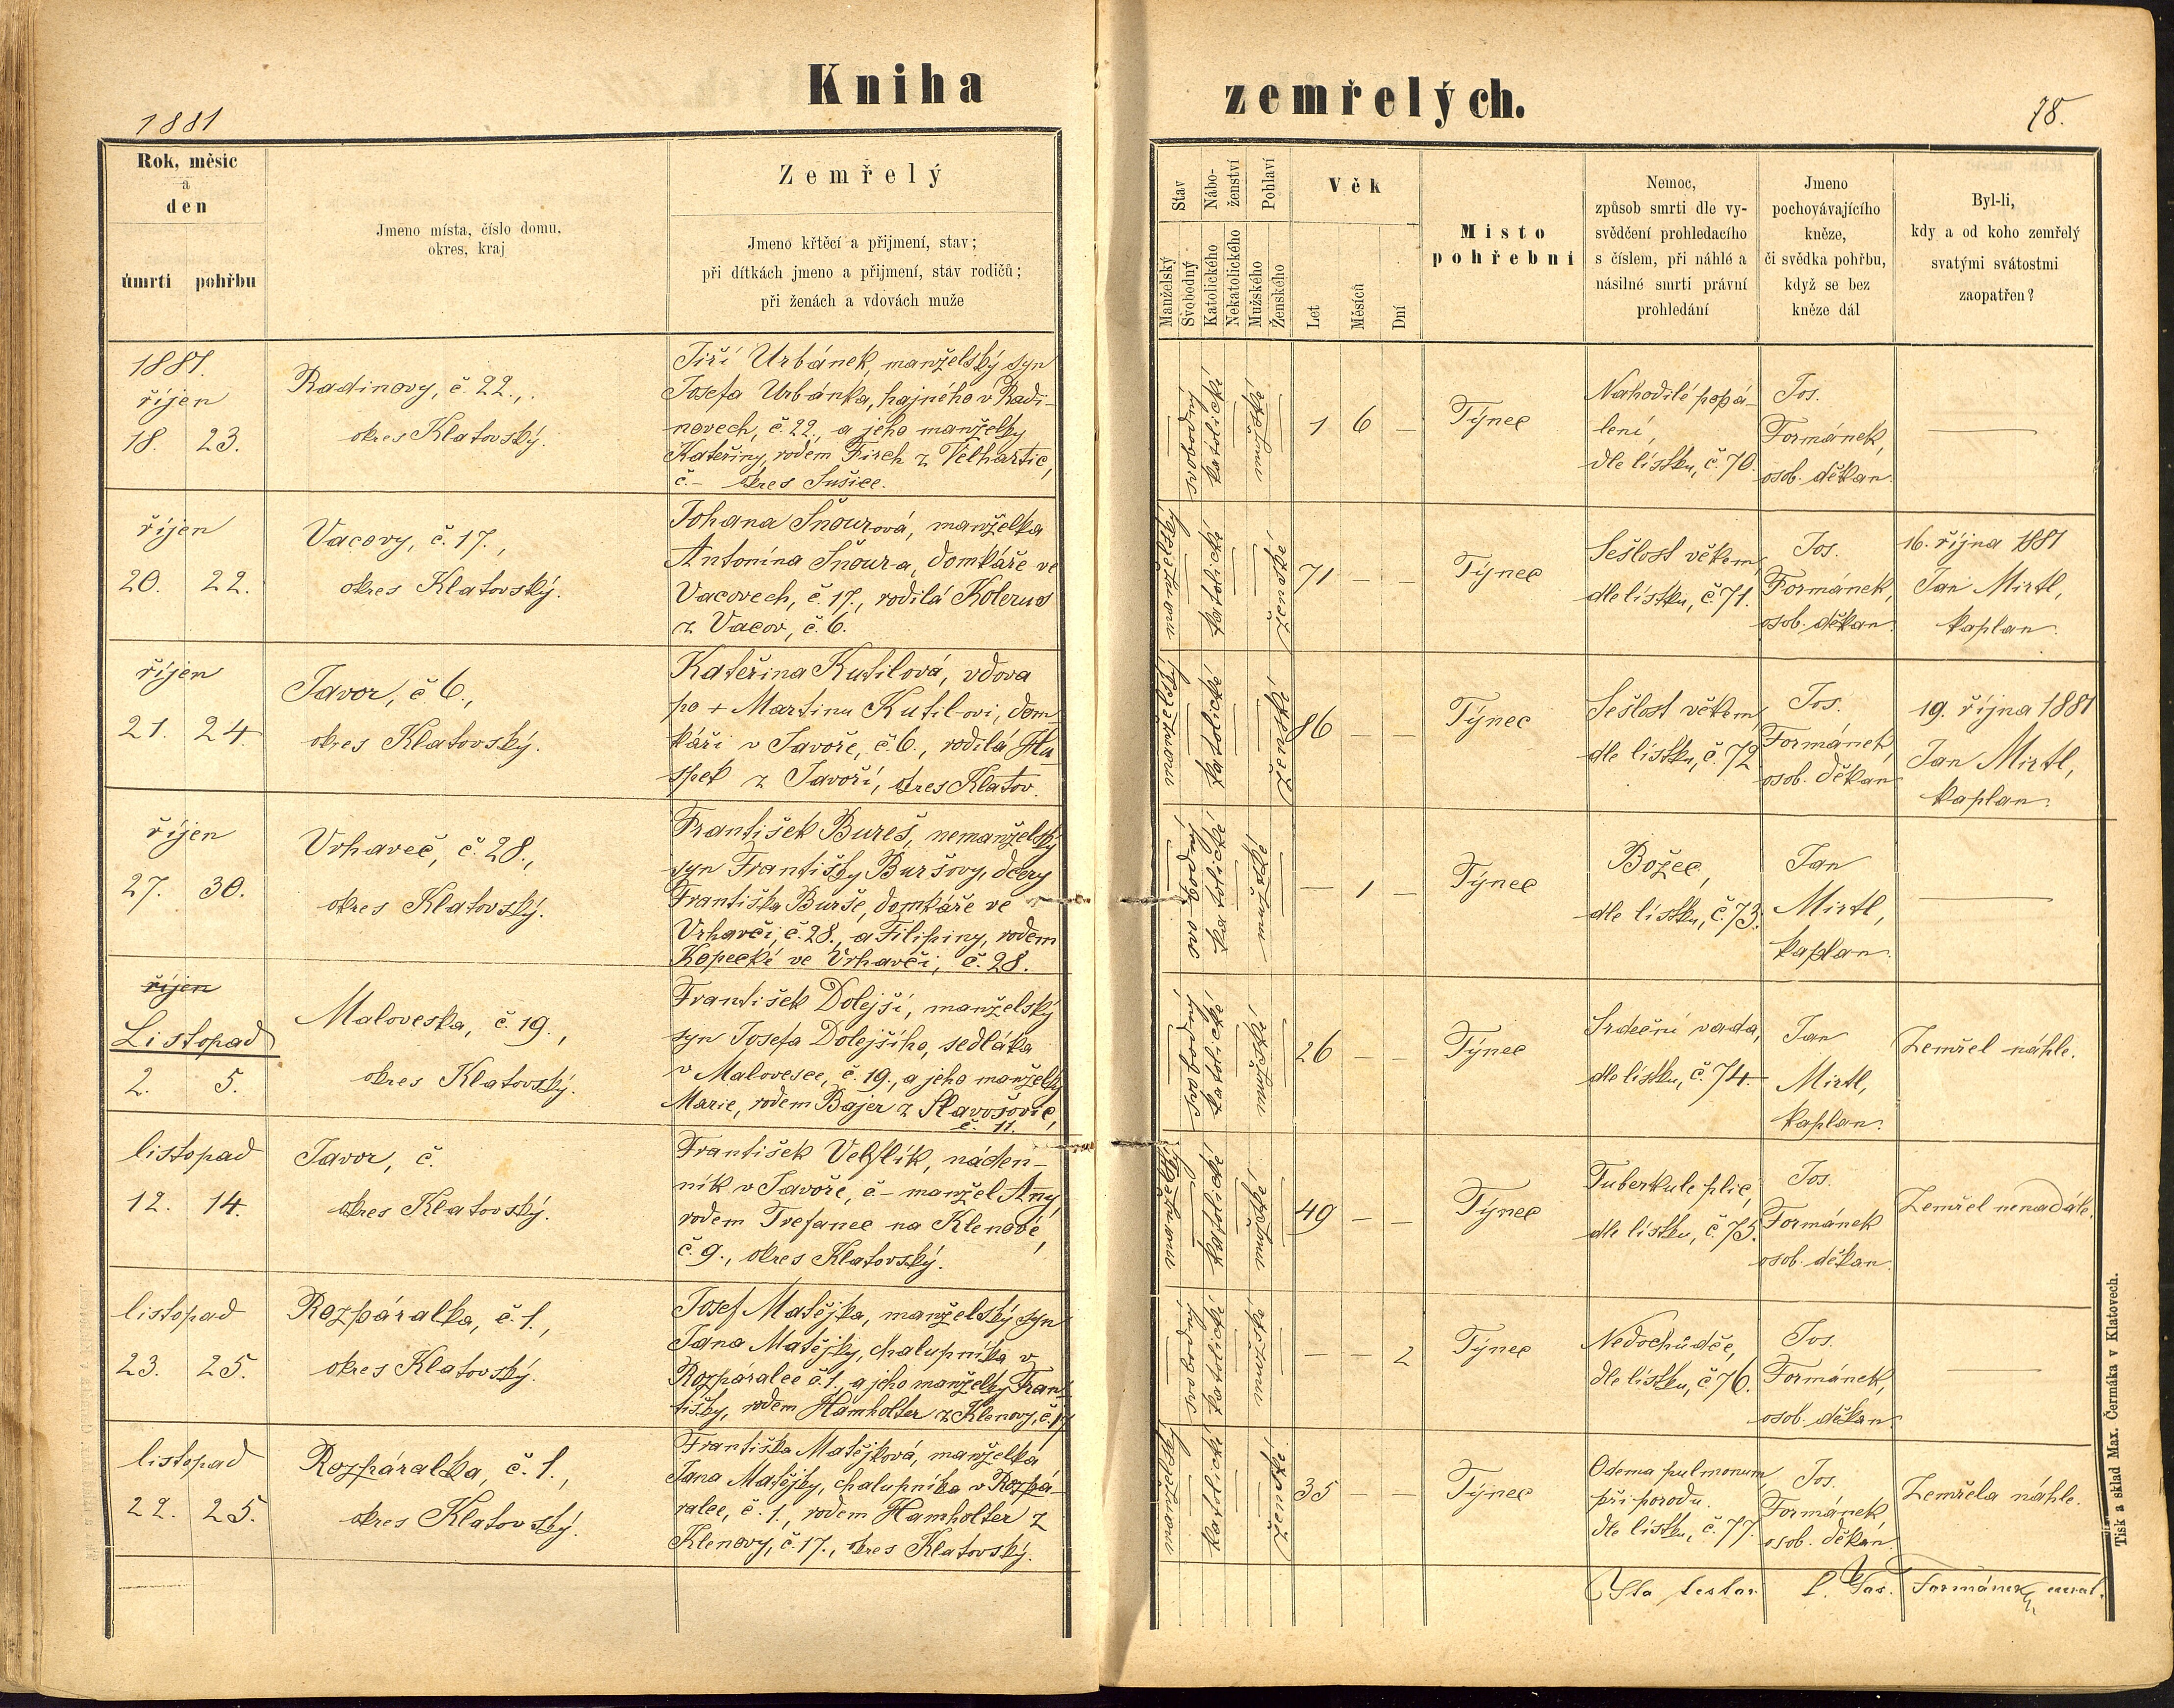 Kniha
zemřelých.
1881
78.
Rok, měsíc
a
den
úmrtí pohřbu
Jmeno místa, číslo domu,
okres, kraj
Zemřelý
Jmeno křtěcí a přijmení, stav;
při dítkách jmeno a přijmení, stav rodičů;
při ženách a vdovách muže
Stav
Manželský
Svobodný
Nábo-
ženství
Katolického
Nekatolického
Pohlaví
Mužského
Ženského
Věk
Let
Měsíců
Dní
Místo
pohřební
Nemoc,
způsob smrti dle vy-
svědčení prohledacího
s číslem, při náhlé a
násilné smrti právní
prohledání
Jmeno
pochovávajícího
kněze,
či svědka pohřbu,
když se bez
kněze dál
Byl-li,
kdy a od koho zemřelý
svatými svátostmi
zaopatřen?
1881.
říjen
18. 23.
Radinovy, č. 22.,
okres Klatovský.
Jiří Urbánek, manželský syn
Josefa Urbánka, hajného v Radi-
novech, č. 22., a jeho manželky
Kateřiny, rodem Firch z Velhartic,
č. – okres Sušice.
svobodný
katolické
mužské
1 6 –
Týnec
Nahodilé popá-
lení,
dle lístku, č. 70.
Jos.
Formánek,
osob. děkan.
říjen
20. 22.
Vacovy, č. 17.,
okres Klatovský.
Johana Šnourová, manželka
Antonína Šnour-a, domkáře ve
Vacovech, č. 17., rodilá Kolerus
z Vacov, č. 6.
manželský
katolické
ženské
71 – –
Týnec
Sešlost věkem,
dle lístku, č. 71.
Jos.
Formánek,
osob. děkan.
16. října 1881
Jan Mirtl,
kaplan.
říjen
21. 24.
Javor, č. 6.,
okres Klatovský.
Kateřina Kutilová, vdova
po + Martinu Kutil-ovi, dom-
káři v Javoře, č. 6., rodilá Hu-
spek z Javoří, okres Klatov.
manželský
katolické
ženské
86 – –
Týnec
Sešlost věkem
dle lístku, č. 72
Jos.
Formánek,
osob. děkan
19. října 1881
Jan Mirtl,
kaplan.
říjen
27. 30.
Vrhaveč, č. 28.,
okres Klatovský.
František Bureš, nemanželský
syn Františky Buršovy, dcery
Františka Burše, domkáře ve
Vrhavči, č. 28., a Filipiny, rodem
Kopecké ve Vrhavči, č. 28.
svobodný
katolické
mužské
– 1 –
Týnec
Božec,
dle lístku, č. 73.
Jan
Mirtl,
kaplan.
říjen
Listopad
2. 5.
Maloveska, č. 19.,
okres Klatovský.
František Dolejší, manželský
syn Josefa Dolejšího, sedláka
v Malovesce, č. 19., a jeho manželky
Marie, rodem Bajer z Slavošovic,
č. 11.
svobodný
katolické
mužské
26 – –
Týnec
Srdeční vada,
dle lístku, č. 74.
Jan
Mirtl,
kaplan.
Zemřel náhle.
listopad
12. 14.
Javor, č.
okres Klatovský.
František Velflík, náden-
ník v Javoře, č – manžel Anny,
rodem Trefanec na Klenové,
č. 9., okres Klatovský.
manželský
katolické
mužské
49 – –
Týnec
Tuberkule plic,
dle lístku, č. 75.
Jos.
Formánek
osob. děkan.
Zemřel nenadále.
listopad
23. 25.
Rozpáralka, č. 1.,
okres Klatovský.
Josef Matějka, manželský syn
Jana Matějky, chalupníka v
Rozpáralce č. 1. a jeho manželky Fran-
tišky, rodem Hamholter z Klenovy, č. 17
svobodný
katolické
mužské
– – 2
Týnec
Nedochůdče,
dle lístku, č 76.
Jos.
Formánek,
osob. děkan
listopad
22. 25.
Rozpáralka, č. 1.,
okres Klatovský.
Františka Matějková, manželka
Jana Matějky, chalupníka v Rozpá-
ralce, č. 1., rodem Hamholter z
Klenovy, č. 17., okres Klatovský.
manželský
katolické
ženské
35 – –
Týnec
Odema pulmonum
při porodu.
dle lístku, č. 77.
Jos.
Formánek,
osob. děkan.
Zemřela náhle.
Ita testor P. Jos. Formánek, curat.
Tisk a sklad Max. Čermáka v Klatovech.